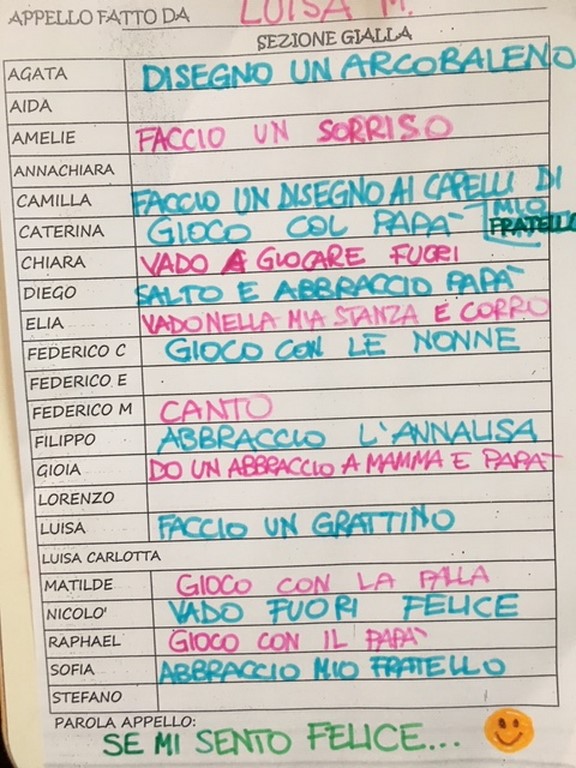 APPELLO FATTO DA LUISA M.
SEZIONE GIALLA
AGATA DISEGNO UN ARCOBALENO
AIDA
AMELIE FACCIO UN SORRISO
ANNACHIARA
CAMILLA FACCIO UN DISEGNO AI CAPELLI DI MIO FRATELLO
CATERINA GIOCO COL PAPÀ
CHIARA VADO A GIOCARE FUORI
DIEGO SALTO E ABBRACCIO PAPÀ
ELIA VADO NELLA MIA STANZA E CORRO
FEDERICO C GIOCO CON LE NONNE
FEDERICO E
FEDERICO M CANTO
FILIPPO ABBRACCIO L'ANNALISA
GIOIA DO UN ABBRACCIO A MAMMA E PAPÀ
LORENZO
LUISA FACCIO UN GRATTINO
LUISA CARLOTTA
MATILDE GIOCO CON LA PALLA
NICOLO' VADO FUORI FELICE
RAPHAEL GIOCO CON IL PAPÀ
SOFIA ABBRACCIO MIO FRATELLO
STEFANO
PAROLA APPELLO:
SE MI SENTO FELICE...